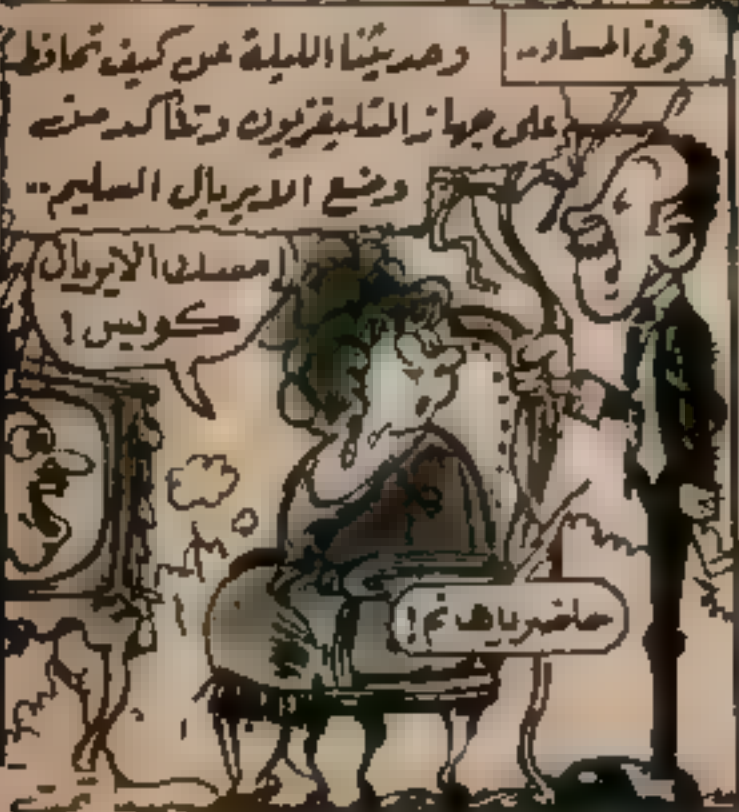 وفى المساء..
وحديثنا الليلة عن كيف تحافظ
على جهاز التليفزيون وتتأكد من
وضع الايريال السليم..
امسك الايريال
كويس!
حاضر يا هانم!